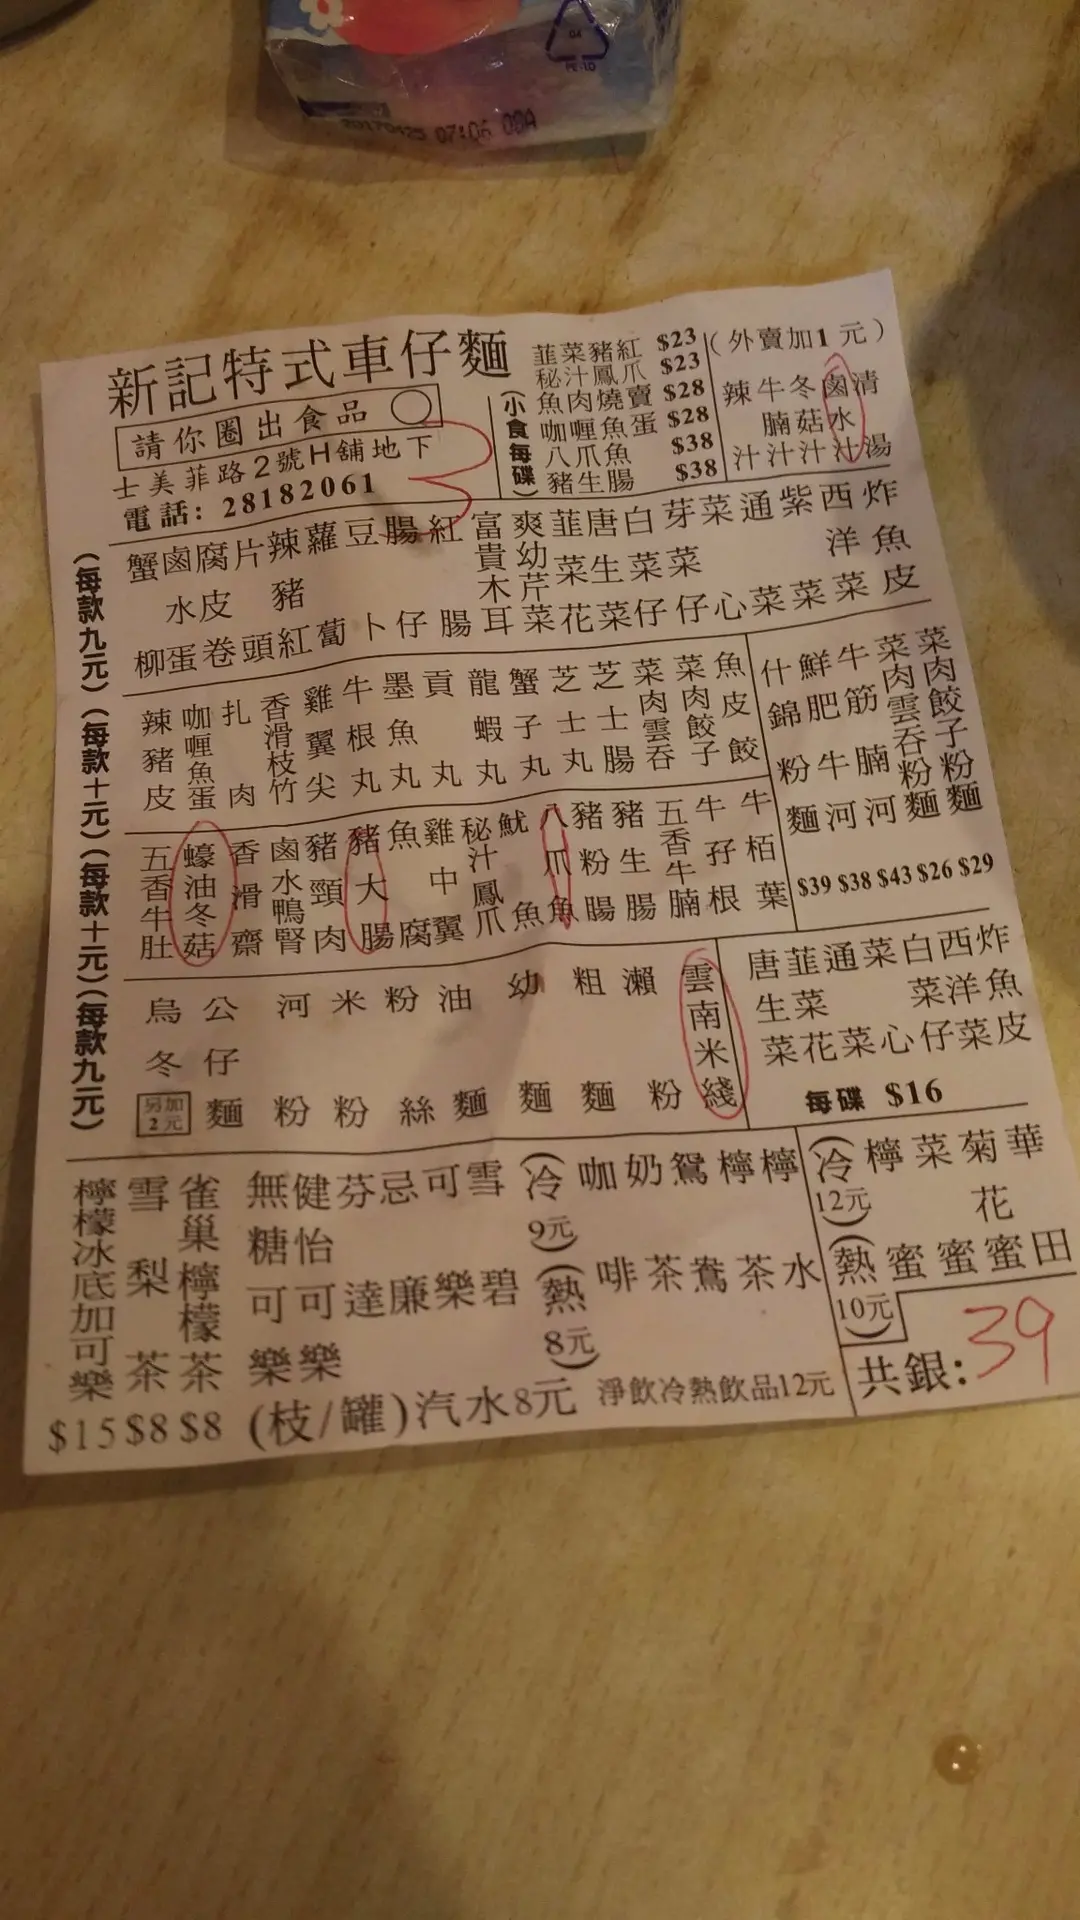 新記特式車仔麵
請你圈出食品 ○
士美菲路2號H舖地下
電話: 28182061
(小食每碟)
韮菜豬紅 $23
秘汁鳳爪 $23
魚肉燒賣 $28
咖喱魚蛋 $28
八爪魚 $38
豬生腸 $38
(外賣加1元)
辣汁
牛腩汁
冬菇汁
鹵水汁
清湯
(每款九元)
蟹柳
鹵水蛋
腐皮卷
片頭
辣豬紅
蘿蔔
豆卜
腸仔
紅腸
富貴木耳
爽幼芹菜
韮菜花
唐生菜
白菜仔
芽菜仔
菜心
通菜
紫菜
西洋菜
炸魚皮
(每款十元)
辣豬皮
咖喱魚蛋
扎肉
香滑枝竹
雞翼尖
牛根丸
墨魚丸
貢丸
龍蝦丸
蟹子丸
芝士丸
芝士腸
菜肉雲吞
菜肉餃子
魚皮餃
什錦粉麵 $39
鮮肥牛河 $38
牛筋腩河 $43
菜肉雲吞粉麵 $26
菜肉餃子粉麵 $29
(每款十元)
五香牛肚
蠔油冬菇
香滑齋
鹵水鴨腎
豬頸肉
豬大腸
魚腐
雞中翼
秘汁鳳爪
魷魚
八爪魚
豬粉腸
豬生腸
五香牛腩
牛孖根
牛栢葉
(每款九元)
烏冬
另加2元
公仔麵
河粉
米粉
粉絲
油麵
幼麵
粗麵
瀨粉
雲南米綫
唐生菜
韮菜花
通菜
菜心
白菜仔
西洋菜
炸魚皮
每碟 $16
檸檬冰底加可樂 $15
雪梨茶 $8
雀巢檸檬茶 $8
無糖可樂
健怡可樂
芬達
忌廉
可樂
雪碧
(枝/罐)汽水8元
(冷9元)
(熱8元)
咖啡
奶茶
鴛鴦
檸茶
檸水
(冷12元)
(熱10元)
檸蜜
菜蜜
菊花蜜
華田
淨飲冷熱飲品12元
共銀: 39
07:06
04
PE-LD